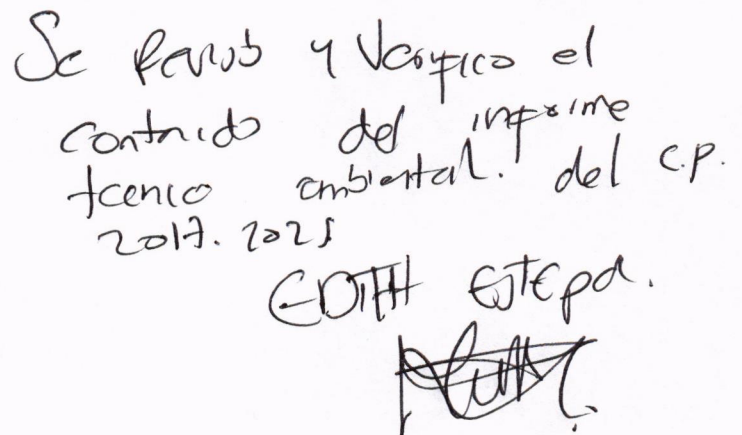 Se Revisó y Verifico el
contenido del informe
tecnico ambiental. del C.P.
2017. 2021
EDITH ESTEpa.